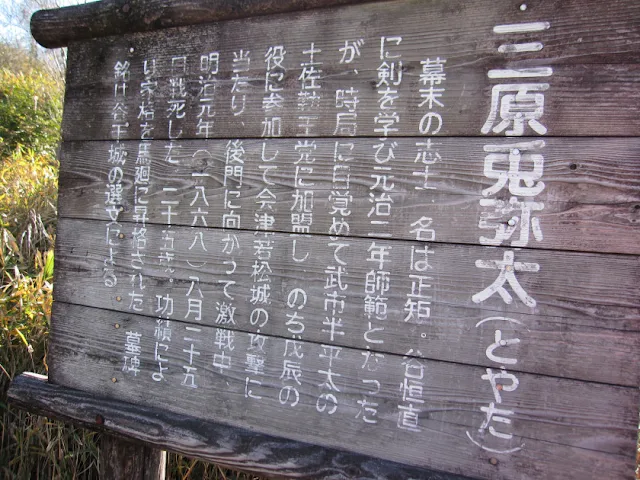 三原兎弥太（とやた）
幕末の志士 名は正知。谷恒直
に剣を学び元治二年師範となった
が、時局に目覚めて武市半平太の
土佐勤王党に加盟し のち戊辰の
役に参加して会津若松城の攻撃に
当たり、後門に向かって激戦中
明治元年（一八六八）八月二十五
日戦死した 二十五才。功績によ
り家格を馬廻に昇格された 墓碑
銘は谷干城の選文による